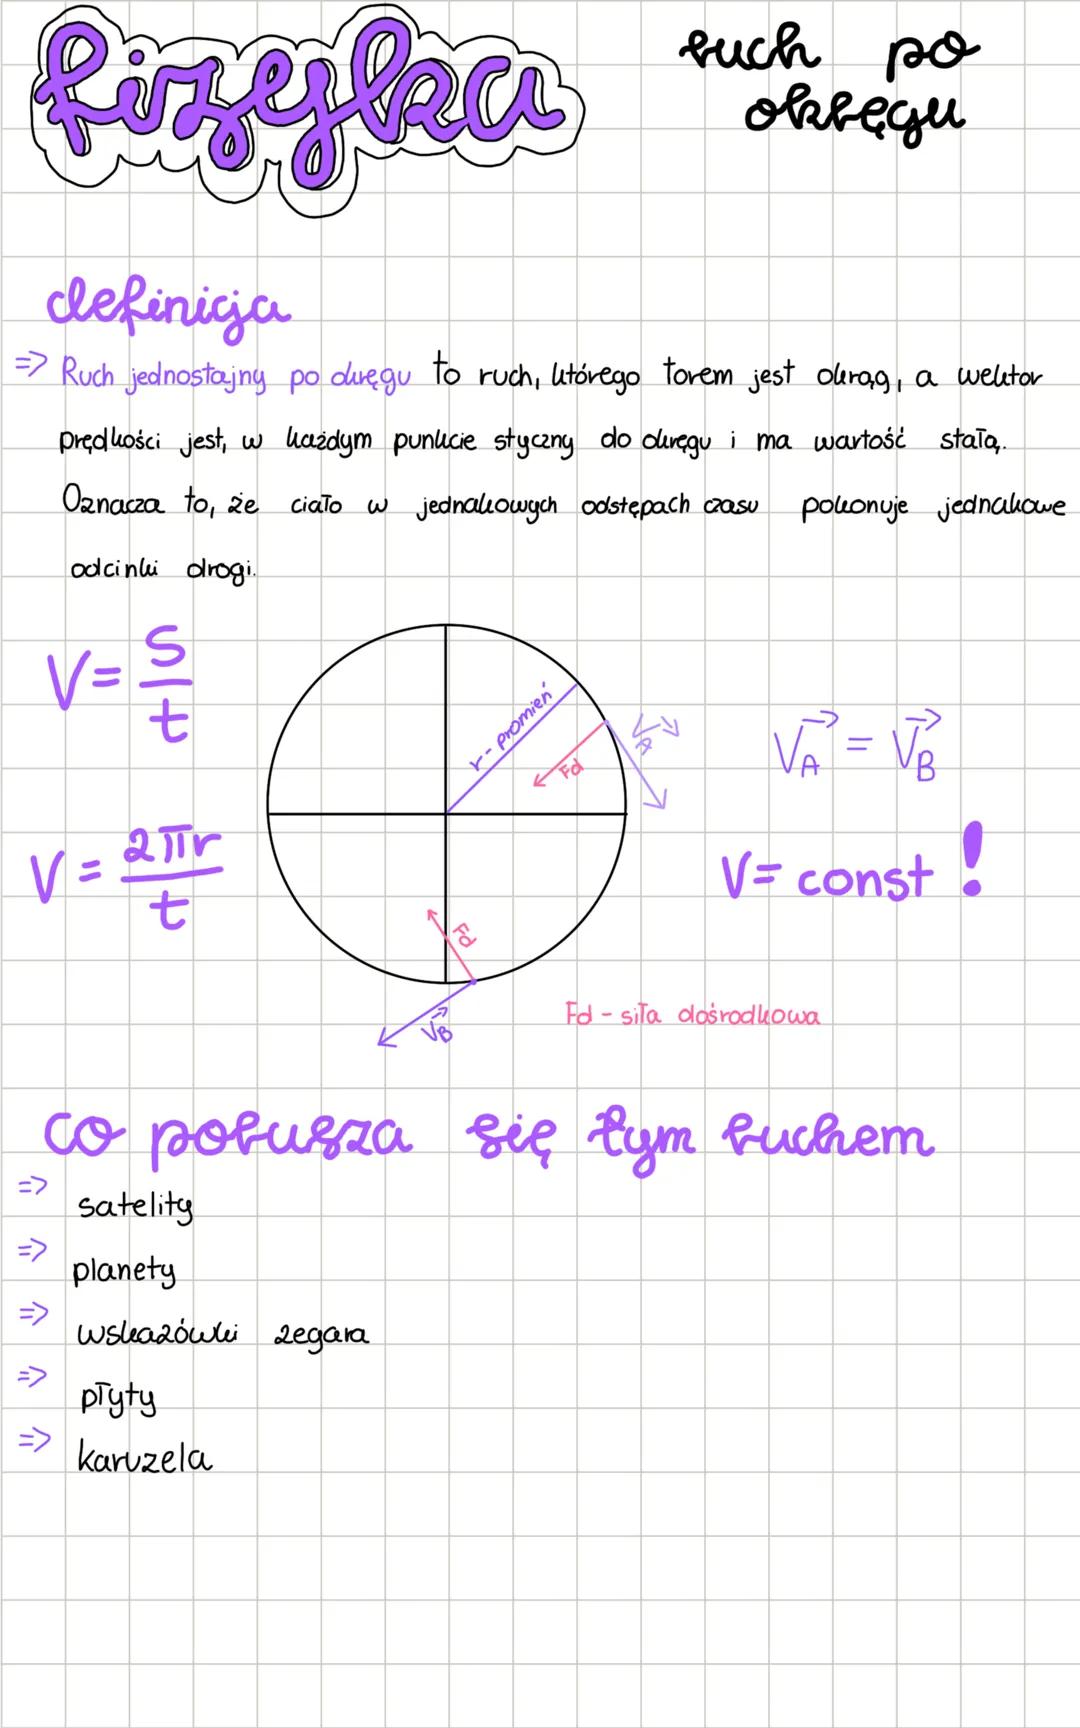 fizyka
ruch po
okręgu
definicja
=> Ruch jednostajny po okręgu to ruch, którego torem jest okrąg, a wektor
prędkości jest, w każdym punkcie styczny do okręgu i ma wartość stałą.
Oznacza to, że ciało w jednakowych odstępach czasu pokonuje jednakowe
odcinki drogi.
V = S/t
r - promień
Fd
V⃗A
V⃗A = V⃗B
V = 2πr/t
V = const !
Fd
V⃗B
Fd - siła dośrodkowa
co porusza się tym ruchem
=> satelity
=> planety
=> wskazówki zegara
=> płyty
=> karuzela